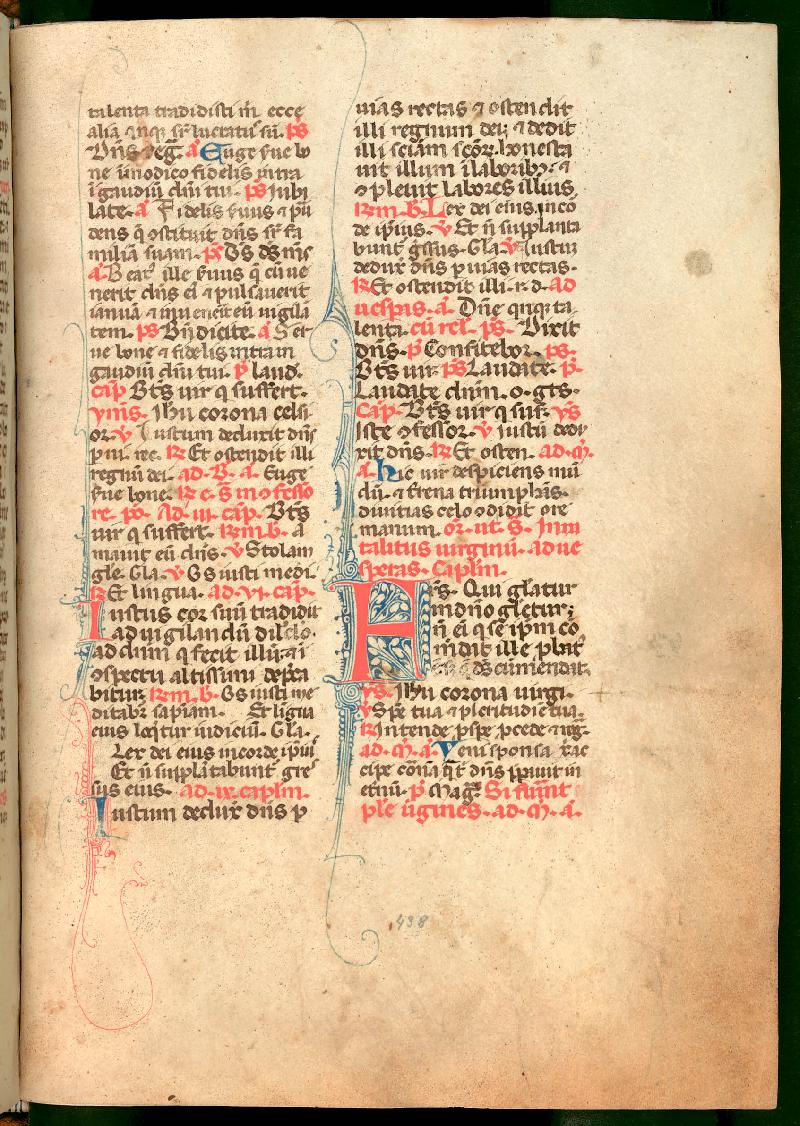 talenta tradidisti m̄ ecce
alia q̄nq; sr̄ lucratus sū. ps
Dn̄s reg̅. a Euge s̄ue bo
ne in modico fidelis intra
ī gaudiū dn̄i tui. ps Jubi
late. a Fidelis s̄uus ⁊ pru
dens q̄ ɔstituit dn̄s sr̄ fa
miliā suam. ps Ds ds n̄s
a Beat᷒ ille s̄uus q̄ cū ve
nerit dn̄s ei⁊ pulsaverit
ianuā ⁊ invenerit eū vigila
tem. ps Bn̄dicite. a Ser
ve bone ⁊ fidelis intra in
gaudiū dn̄i tui. p̄ laud.
cap̄ Bt̄s vir q̄ suffert.
ymn̄s. Jhū corona celsi
or. v̄ Justum deduxit dn̄s
p vi. rec. R Et ostendit illi
regnū dei. ad. B. a. Euge
s̄ue bone. R c. s. in ɔfesso
re. po. Ad. iii. cap̄. Bt̄s
vir q̄ suffert. Rm. b. a
mavit eū dn̄s. v̄ Stolam
gle. Gla. v̄ Os iusti medi.
R Et lingua. ad. vi. cap̄.
Iustus cor suū tradidit
ad vigilandū diluclo.
ad dnm q̄ fecit illū: ⁊ i
ɔspectu altissimi depca
bitur Rm. b. Os iusti me
ditabr̄ sapiam. Et ligua
eius loq̄tur iudiciū. Gla.
Lex dei eius in corde ip̄ius
Et n̄ supplātabunt gre
sus eius. ad. ix. caplm.
Iustum deduxit dn̄s p
vias rectas ⁊ ostendit
illi regnum dei ⁊ dedit
illi sciam scor̄. honesta
vit illum ī laborib; ⁊
ɔplevit labores illius.
Rm. b. Lex dei eius in co
de ip̄ius. v̄ Et n̄ supplanta
bunt gssus. Gla. v̄ Justū
dedux̄ dn̄s p vias rectas.
R Et ostendit illi. r. d. ad
vespis. a. Dn̄e qnq; ta
lenta. cū rel. ps. Dixit
dn̄s. p̄ Confitebor. ps.
Bt̄s vir. ps Laudate. p̄.
Laudate dnm. o. gts.
Cap̄. Bt̄s vir q̄ suf. ys
Iste ɔfessor. v̄ iustū dedu
xit dn̄s. R Et osten. ad. m̄.
a. hic vir despiciens mū
dū. ⁊ trena triumphās.
divitias celo ɔdidit ore
manum. or. ut. s. In na
talitus virginū. ad ve
speras. Caplm.
Fr̄s. Qui gl̄atur
in dn̄o gl̄etur;
n̄ ei q̄ se ip̄m cō
mdat ille pbat᷒
est: s; q̄ ds cūmendat.
ys. Jhū corona virgi.
v̄ Spe tua ⁊ plcritudie tua.
R Intende pspe pcede ⁊ reg.
ad. m̄. a. Veni sponsa xr̄ ac
cipe coronā q̄ t dn̄s ppavit in
etnū. p̄ Mag̅ Si fuerint
ples v̄gines. ad. m̄. a.
438